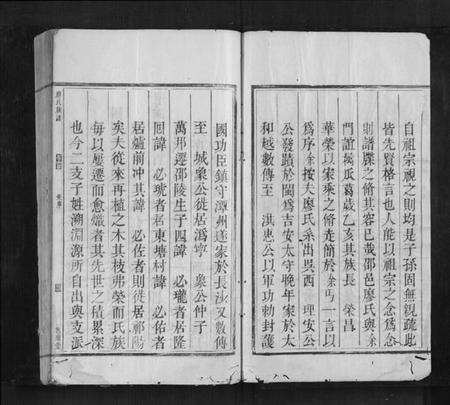 自祖宗視之則均是子孫固無親疏此
皆先賢格言也人能以祖宗之念爲念
則譜牒之脩其容已哉邵邑廖氏與余
門誼揭瓜葛歲乙亥其族長　榮昌
華榮以家乘之脩走簡於余丐一言以
爲序余按夫廖氏系出吳西　理安公
公發蹟於閩爲吉安太守晚年家於太
和越數傳至　洪惠公以軍功勅封護
國功臣鎮守潭州遂家於長沙又數傳
至　城衆公徙居潙寧　衆公仲子
萬邦遷邵陵生子四諱　必瓏者居隆
回諱　必琥者居東塘村諱　必佑者
居壚前冲其諱　必佐者則徙居祁陽
矣夫從來再植之木其枝弗榮而氏族
每以屢遷而愈熾者其先世之積累深
也今二支子姓溯淵源所自出與支派
廖氏族譜